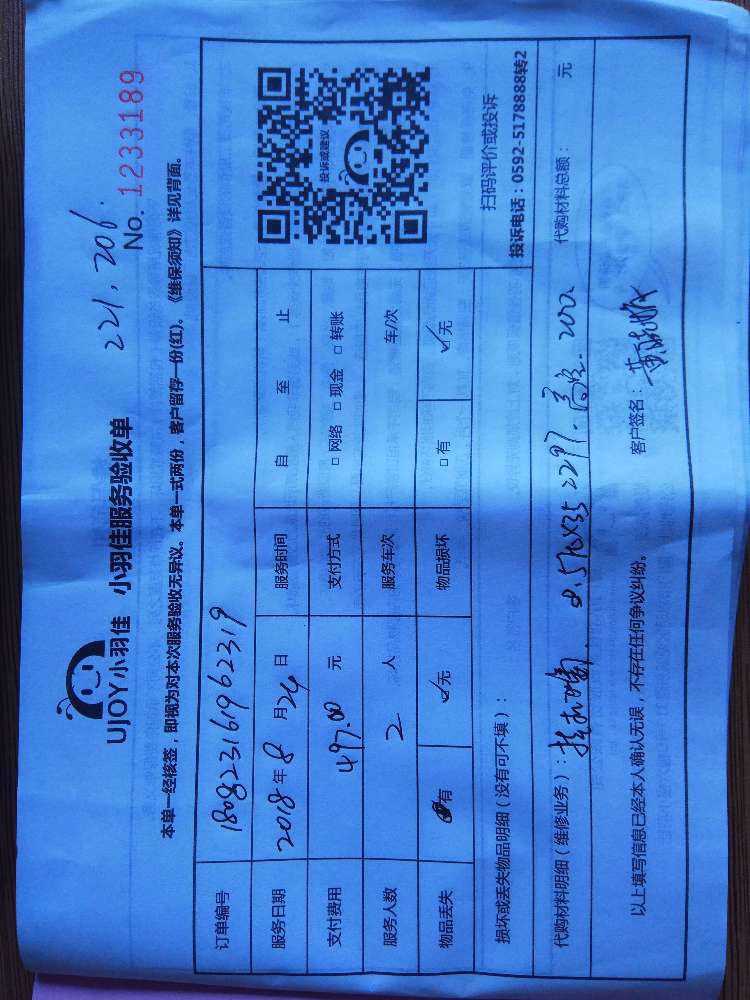 221,206.
UJOY小羽佳 小羽佳服务验收单
No. 1233189
本单一经核签，即视为对本次服务验收无异议。本单一式两份，客户留存一份(红)。《维保须知》详见背面。
订单编号 18082316196 2319
服务日期 2018年8月24日 服务时间 自 至 止
支付费用 497.00 元 支付方式 □网络 □现金 □转账
服务人数 2 人 服务车次 车/次
物品丢失 有 ✓无 物品损坏 □有 ✓无
投诉或建议
扫码评价或投诉
投诉电话：0592-5178888转2
损坏或丢失物品明细（没有可不填）：
代购材料明细（维修业务）： 8.570X35=297. 高空.200 代购材料总额： 元
以上填写信息已经本人确认无误，不存在任何争议纠纷。 客户签名：